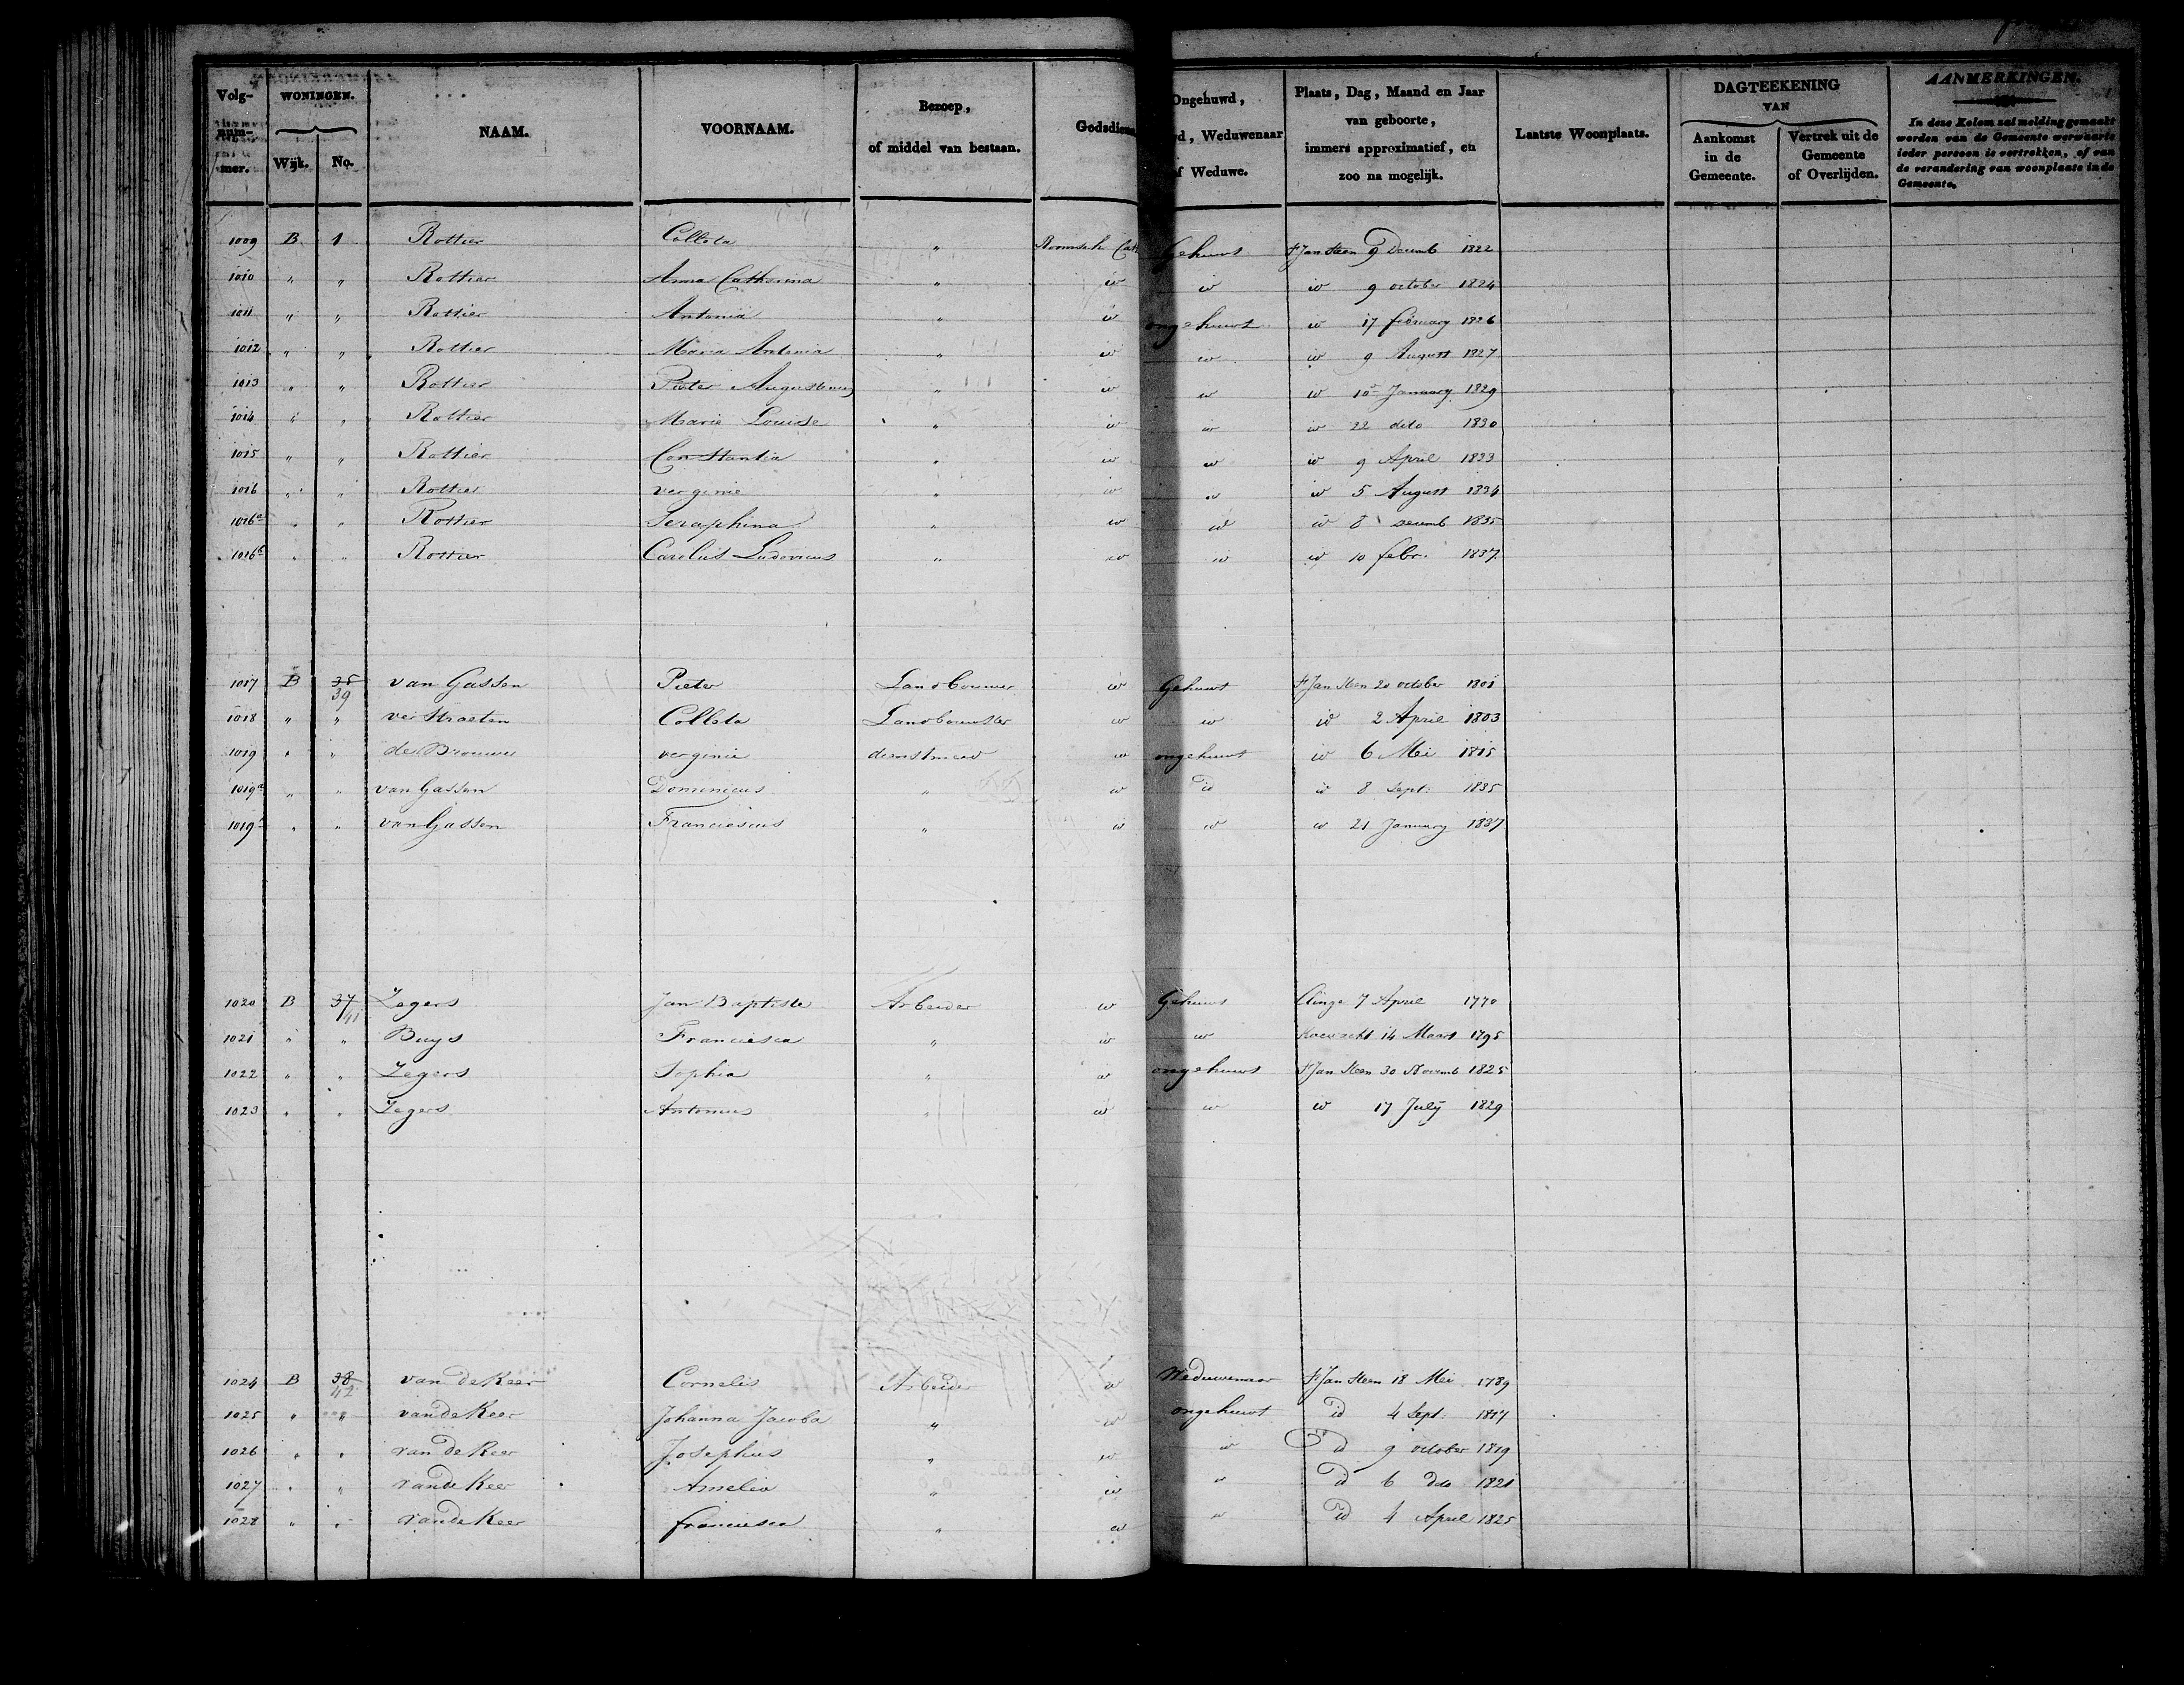 Volg-nummer. WONINGEN. Wijk. No. NAAM. VOORNAAM. Beroep, of middel van bestaan. Godsdienst Ongehuwd, Weduwenaar of Weduwe. Plaats, Dag, Maand en Jaar van geboorte, immers approximatief, en zoo na mogelijk. Laatste Woonplaats. DAGTEEKENING VAN Aankomst in de Gemeente. Vertrek uit de Gemeente of Overlijden. AANMERKINGEN. In deze Kolom zal melding gemaakt worden van de Gemeente werwaarts ieder persoon is vertrokken, of van de verandering van woonplaats in de Gemeente.
1009 B 1 Rottier Colleta " Roomsch Cat Gehuwt St Jan Steen 9 Decemb 1822
1010 " " Rottier Anna Catherina " id id id 9 october 1824
1011 " " Rottier Antonia " id ongehuwt id 17 february 1826
1012 " " Rottier Maria Antonia " id id id 9 August 1827
1013 " " Rottier Pieter Augustinus " id id id 10 January 1829
1014 " " Rottier Marie Louise " id id id 22 dito 1830
1015 " " Rottier Constantia " id id id 9 April 1833
1016 " " Rottier verginie " id id id 5 August 1834
1016a " " Rottier Seraphina " id id id 8 decemb 1835
1016b " " Rottier Carolus Ludovicus " id id id 10 febr. 1837
1017 B 35 39 van Gassen Pieter Landbouwer id Gehuwt St Jan Steen 20 october 1801
1018 " " ver Straeten Colleta Landbouwster id id id 2 April 1803
1019 " " de Brouwer verginie dienstmeid id ongehuwt id 6 Mei 1815
1019a " " van Gassen Dominicus " id id id 8 Sept: 1835
1019b " " van Gassen Franciscus " id id id 21 January 1837
1020 B 37 41 Zegers Jan Baptiste Arbeider id Gehuwt Clinge 7 April 1770
1021 " " Buys Francisca " id id Koewacht 14 Maart 1795
1022 " " Zegers Sophia " id ongehuwt St Jan Steen 30 Novemb 1825
1023 " " Zegers Antonius " id id id 17 July 1829
1024 B 38 42 van de Keer Cornelis Arbeider id Weduwenaar St Jan Steen 18 Mei 1789
1025 " " van de Keer Johanna Jacoba " id ongehuwt id 4 Sept: 1817
1026 " " van de Keer Josephus " id id id 9 october 1819
1027 " " van de Keer Amelia " id id id 6 dito 1821
1028 " " van de Keer francisca " id id id 4 April 1825